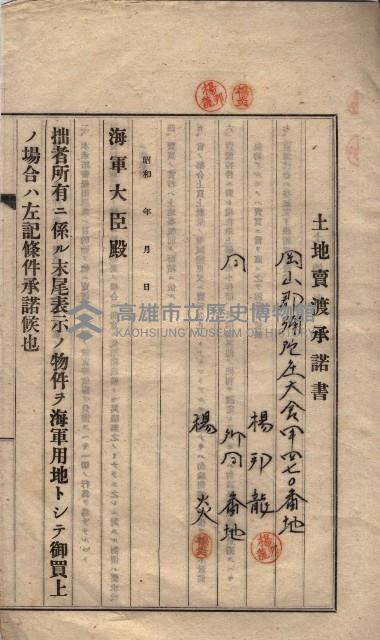 土地賣渡承諾書
岡山郡彌陀庄大舍甲四七〇番地
楊邦龍
同 所同番地
楊炎
海軍大臣殿
昭和 年 月 日
拙者所有ニ係ル末尾表示ノ物件ヲ海軍用地トシテ御買上
ノ場合ハ左記條件承諾候也
高雄市立歷史博物館
KAOHSIUNG MUSEUM OF HISTORY